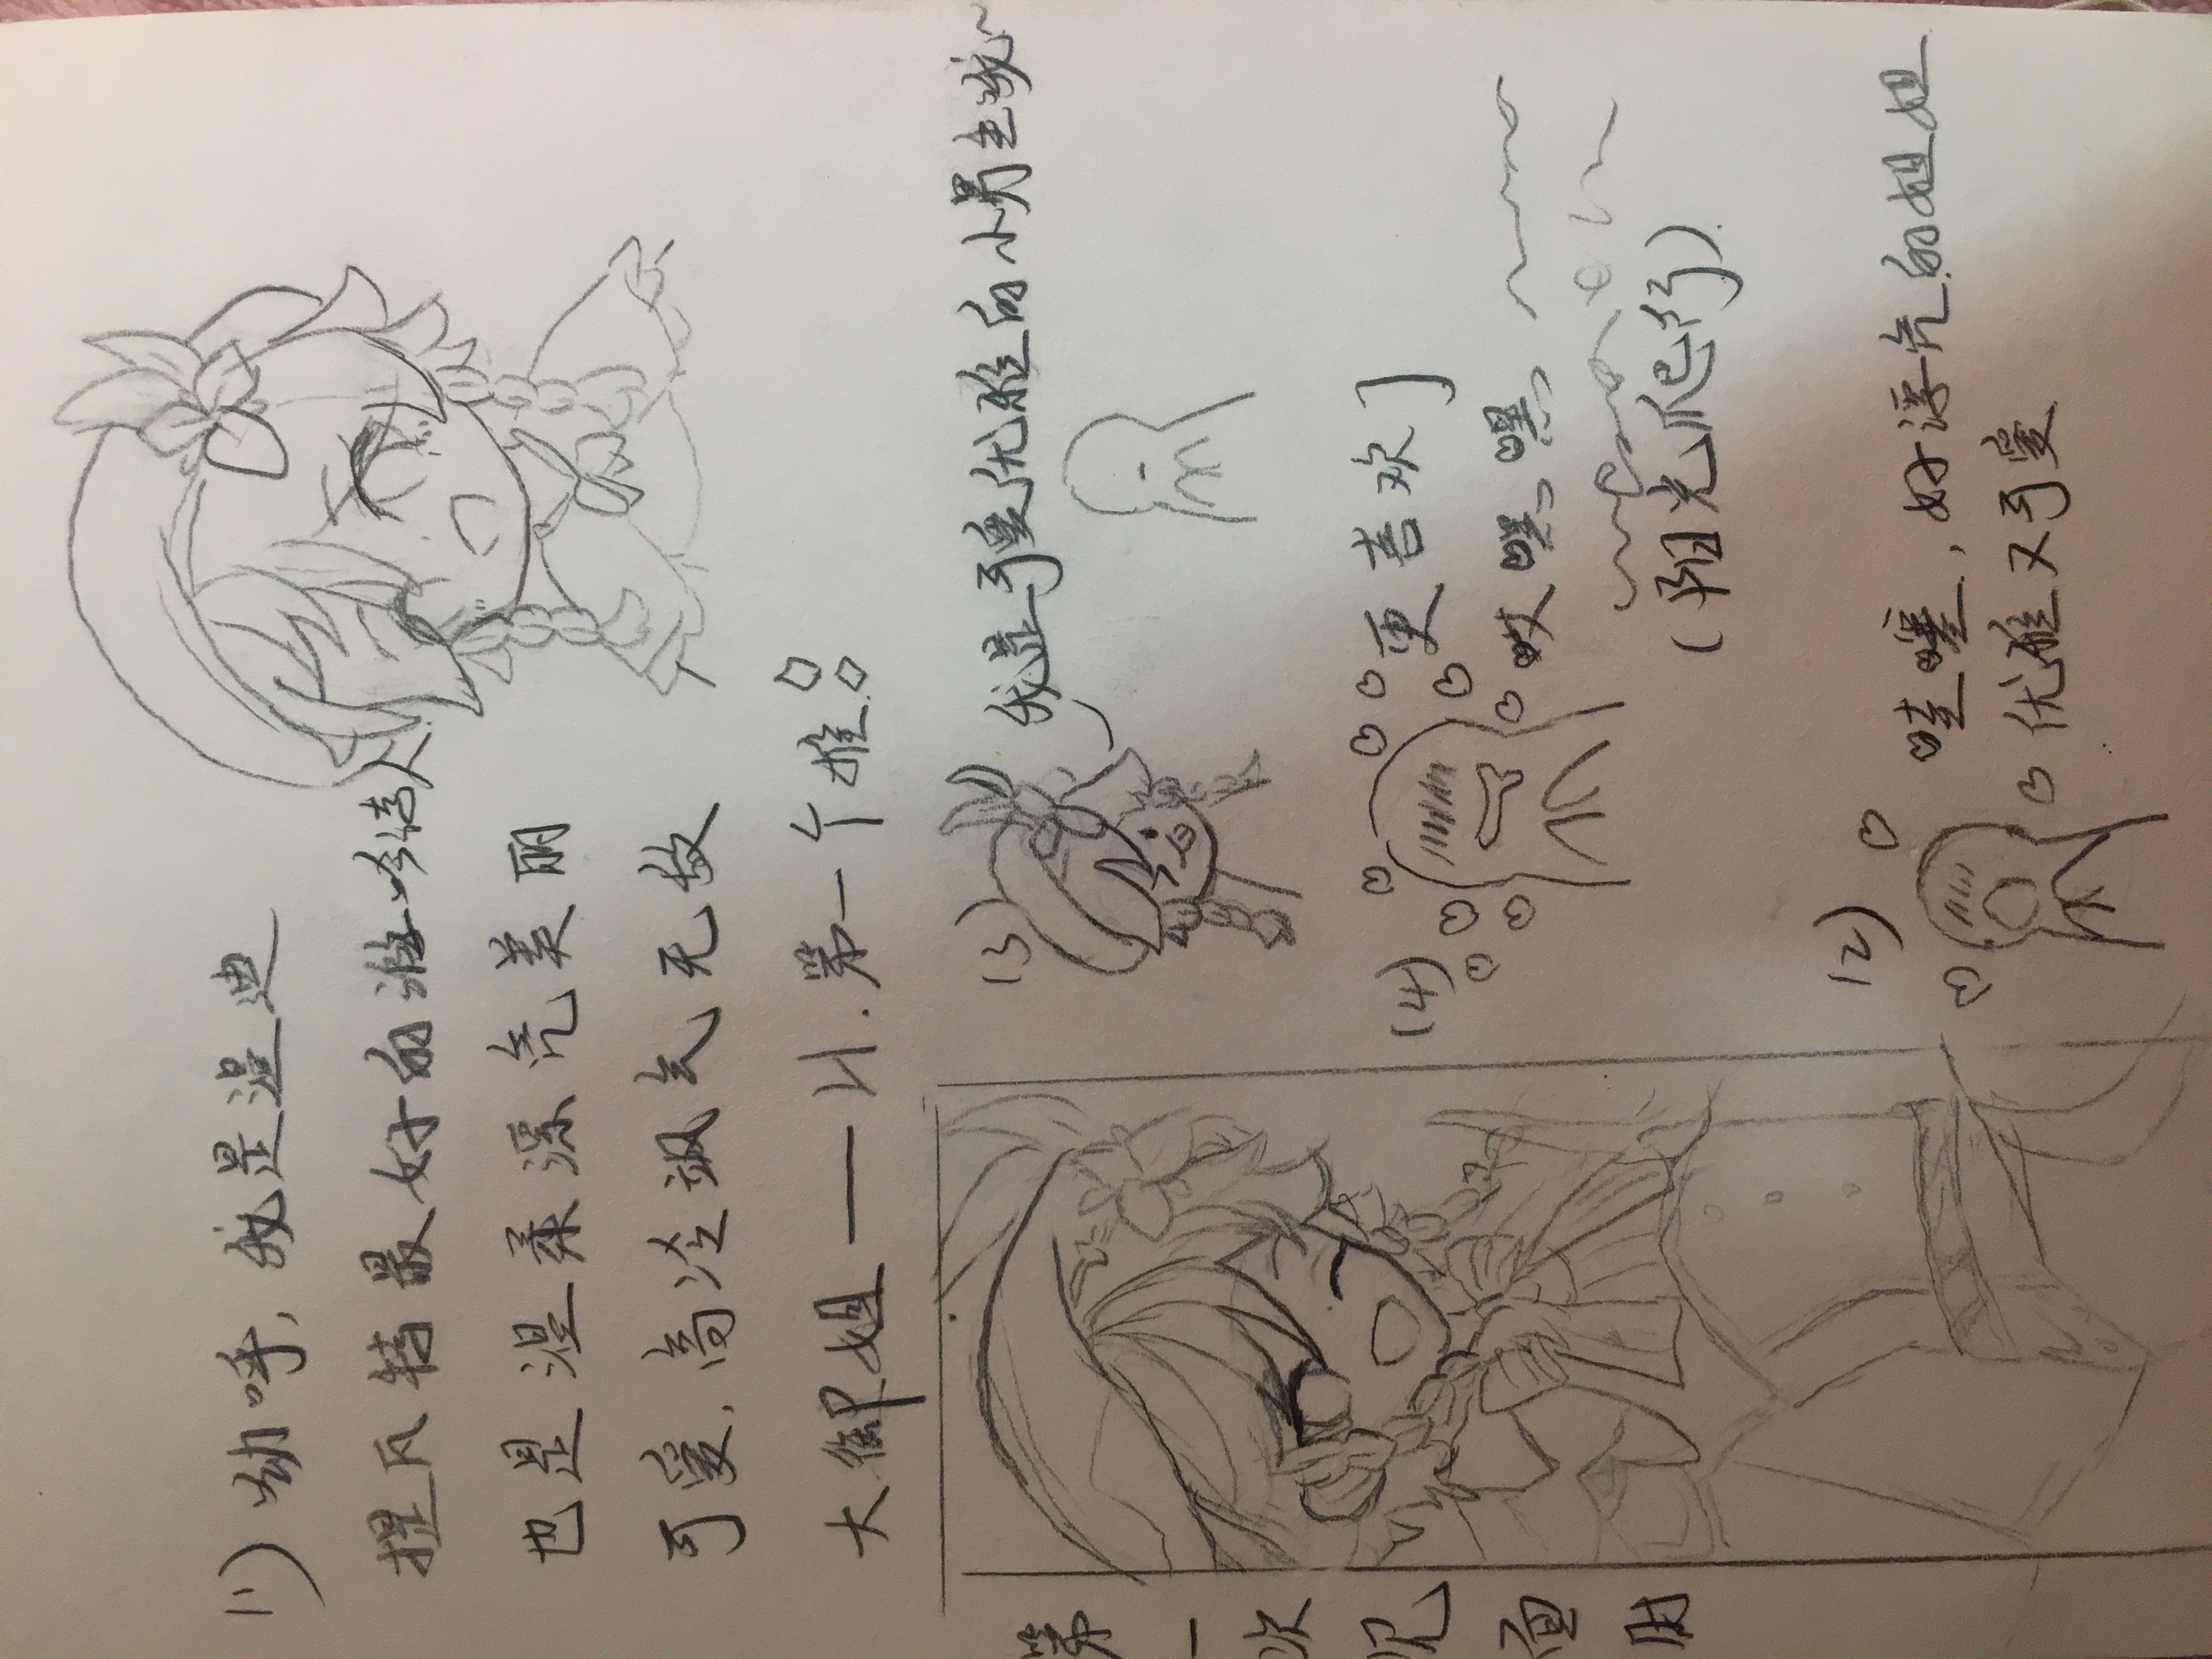 (1) 幼呼,我是温迪
提瓦特最好的游吟诗人
也是温柔漂亮美丽
可爱,高冷飒气无敌
大御姐——第一个推
第一次见面时
(2)
哇噻,好漂亮的姐姐
优雅又可爱
(3)
我是可爱优雅的小男生哦~
(4)
更喜欢了
哎嘿嘿
(阳光爬行)